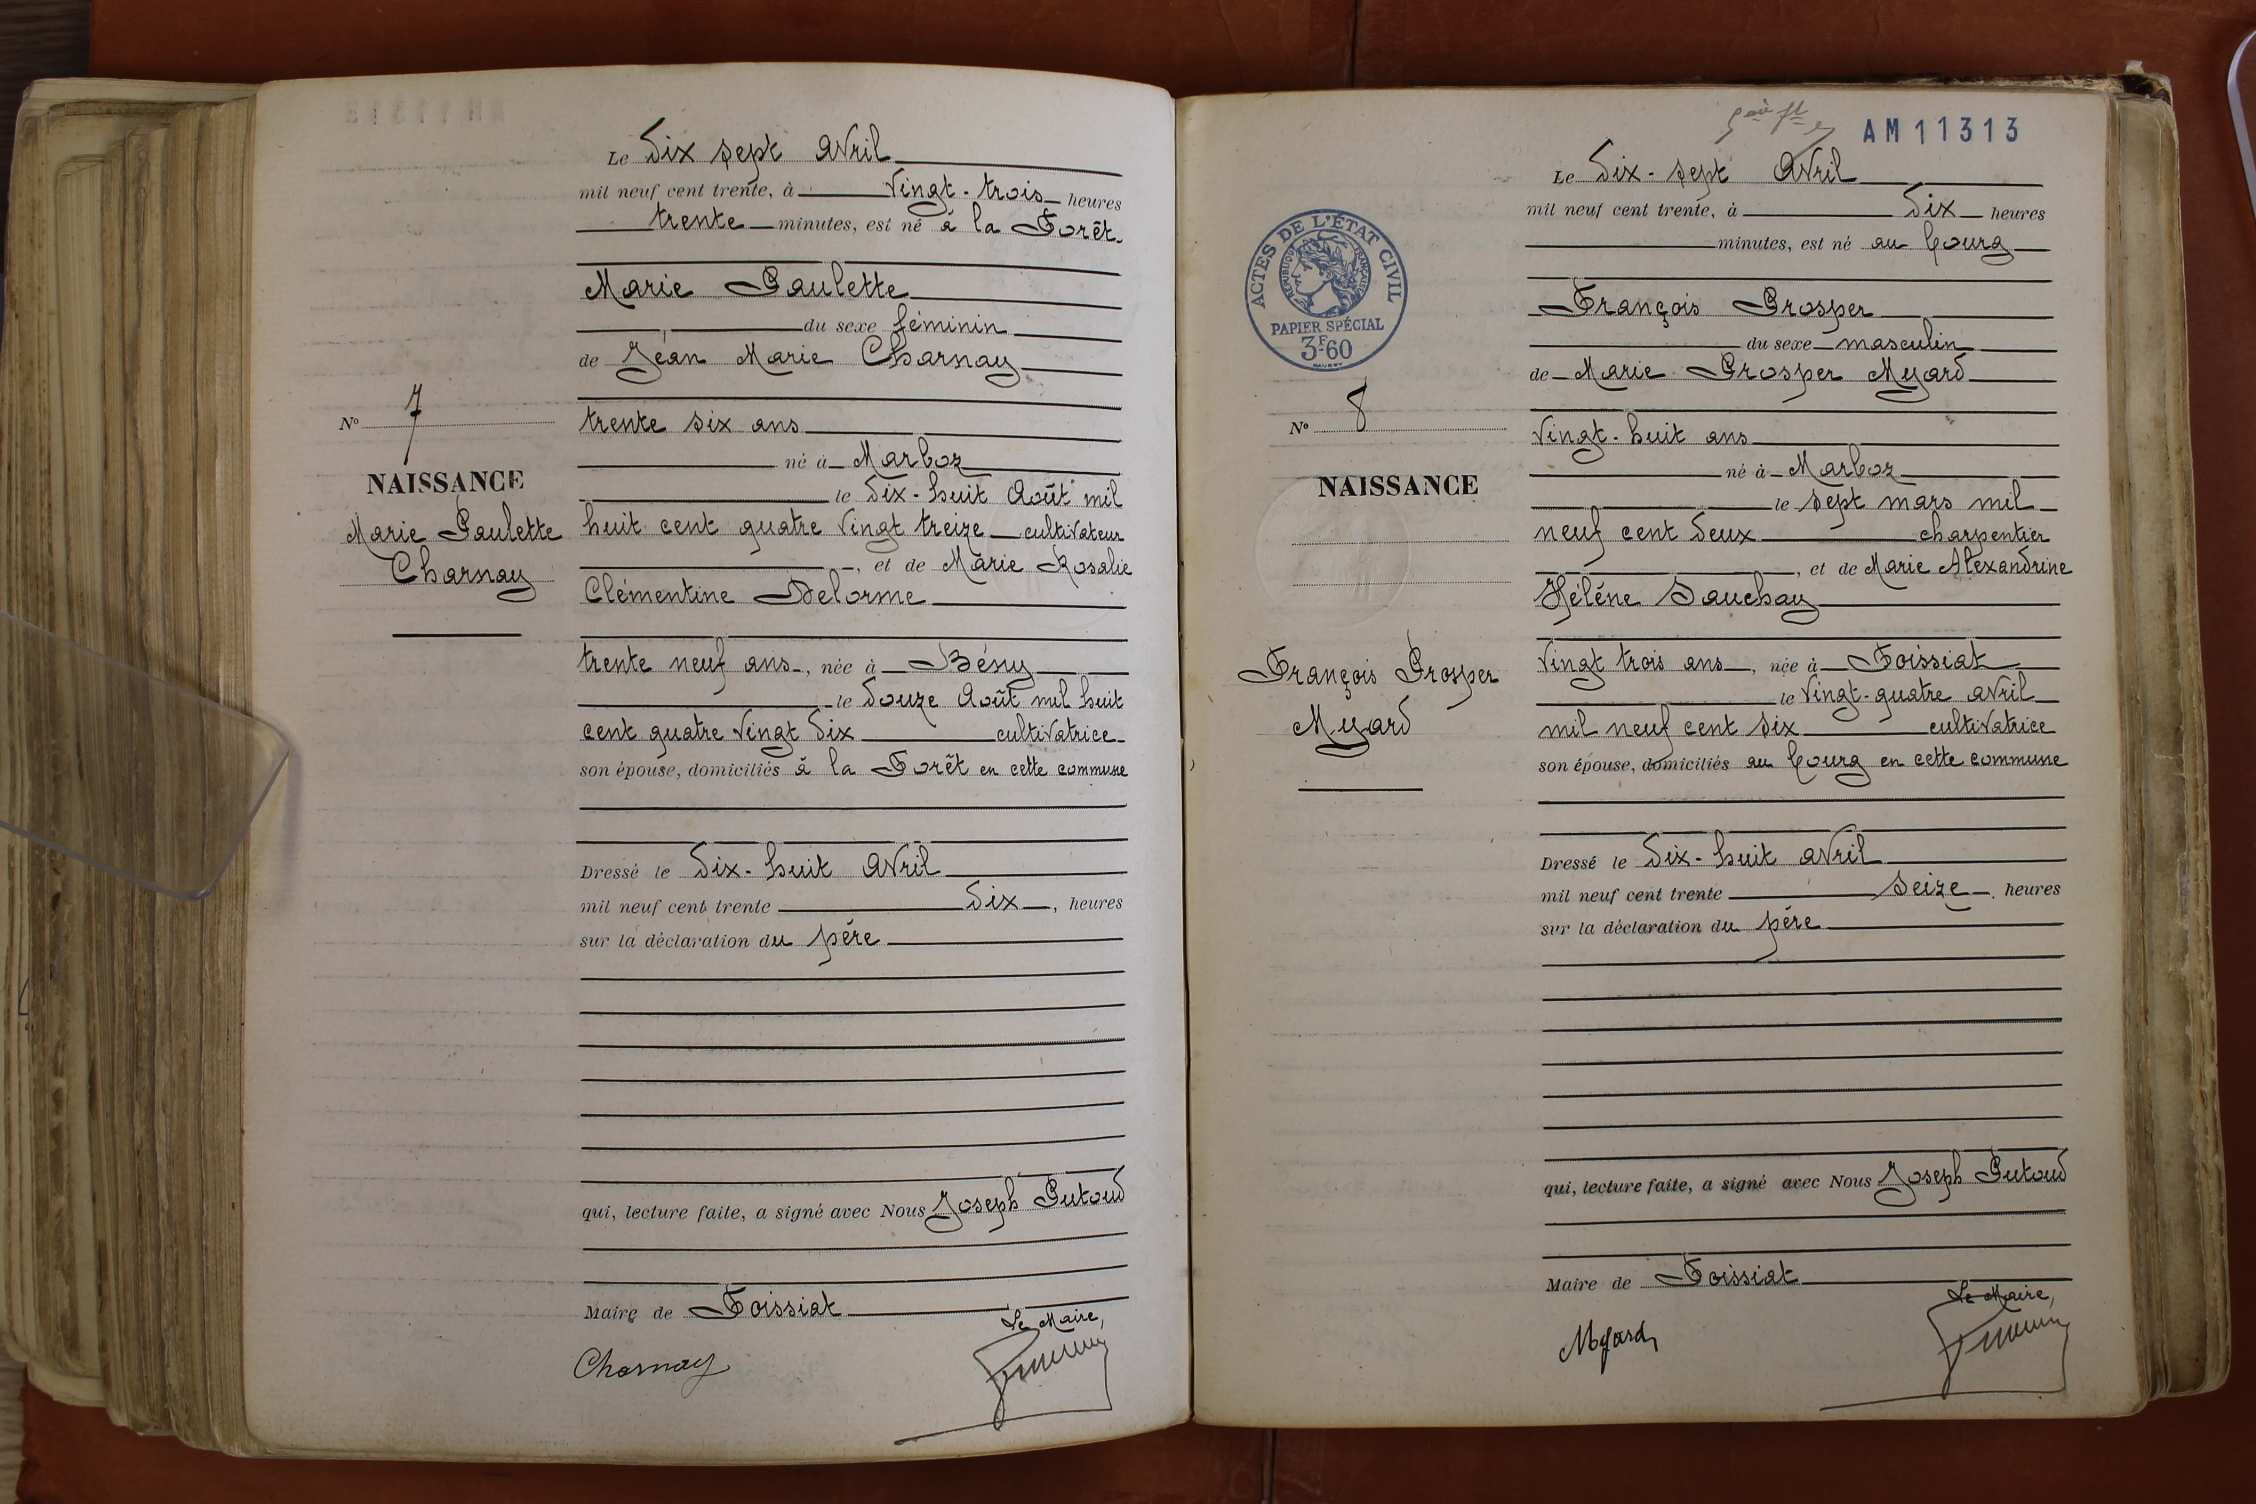 Le Dix sept Avril
mil neuf cent trente, à Vingt-trois heures
trente minutes, est né à la Forêt
Marie Paulette
du sexe féminin
de Jéan Marie Charnay
trente six ans
né à Marboz
le Dix-huit Août mil
huit cent quatre vingt treize cultivateur
, et de Marie Rosalie
Clémentine Delorme
trente neuf ans, née à Bény
le Douze Août mil huit
cent quatre vingt Dix cultivatrice
son épouse, domiciliés à la Forêt en cette commune
Dressé le Dix-huit Avril
mil neuf cent trente Dix, heures
sur la déclaration du père
qui, lecture faite, a signé avec Nous Joseph Putoud
Maire de Foissiat
Le Maire,
Charnay
N° 7
NAISSANCE
Marie Paulette
Charnay
AM 11313
Le Dix-sept Avril
mil neuf cent trente, à Dix heures
minutes, est né au bourg
François Prosper
du sexe masculin
de Marie Prosper Myard
Vingt-huit ans
né à Marboz
le sept mars mil
neuf cent Deux charpentier
, et de Marie Alexandrine
Hélène Sauchay
Vingt trois ans, née à Foissiat
le Vingt-quatre avril
mil neuf cent six cultivatrice
son épouse, domiciliés au bourg en cette commune
Dressé le Dix-huit avril
mil neuf cent trente Seize heures
sur la déclaration du père
qui, lecture faite, a signé avec Nous Joseph Putoud
Maire de Foissiat
Le Maire,
Myard
ACTES DE L'ÉTAT CIVIL
RÉPUBLIQUE FRANÇAISE
PAPIER SPÉCIAL
3F60
N° 8
NAISSANCE
François Prosper
Myard